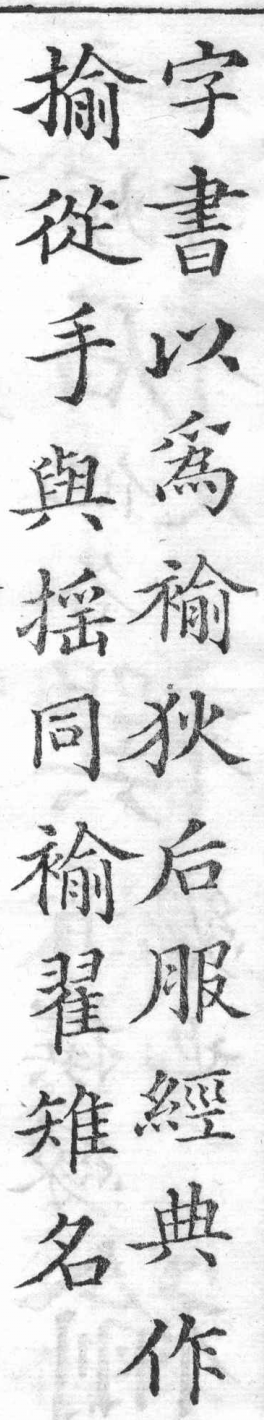 字書以爲褕狄后服經典作
揄從手與揺同褕翟雉名